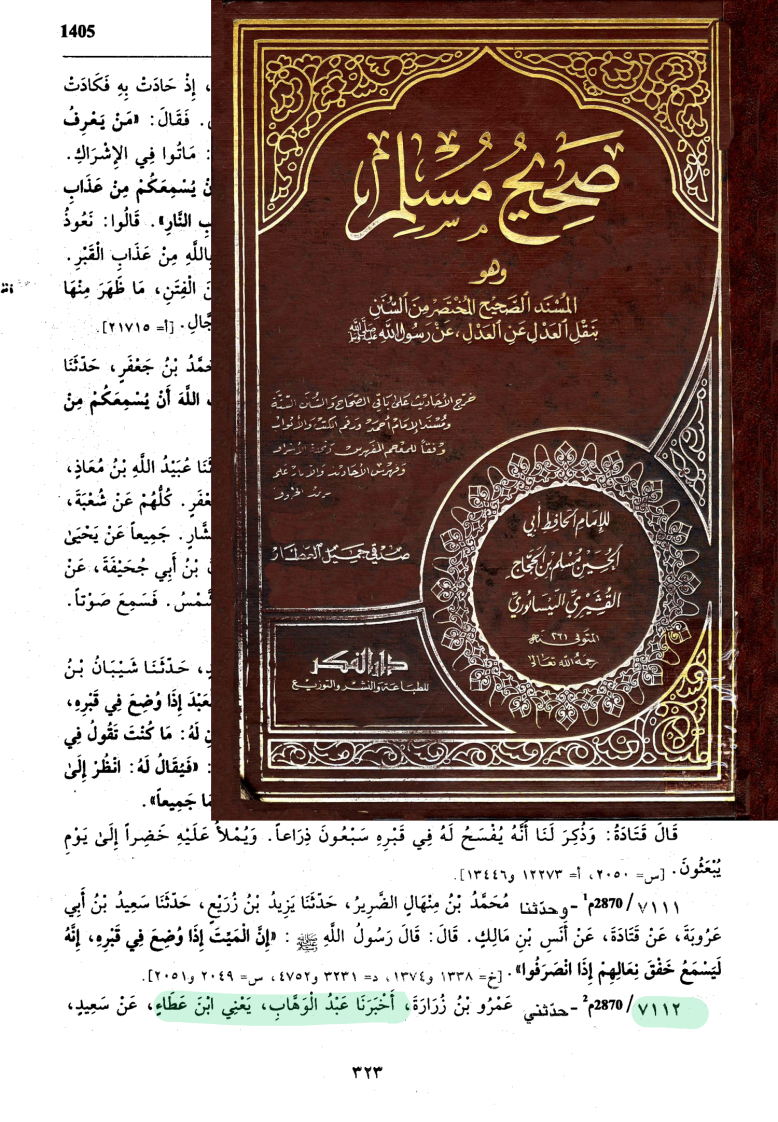 1405
، إِذْ حَادَتْ بِهِ فَكَادَتْ
. فَقَالَ: «مَنْ يَعْرِفُ
: مَاتُوا فِي الإِشْرَاكِ.
نْ يُسْمِعَكُمْ مِنْ عَذَابِ
بِ النَّارِ». قَالُوا: نَعُوذُ
بِاللَّهِ مِنْ عَذَابِ الْقَبْرِ.
نَ الْفِتَنِ، مَا ظَهَرَ مِنْهَا
جَّالِ. [أ= ٢١٧١٥].
حَمَّدُ بْنُ جَعْفَرٍ، حَدَّثَنَا
اللَّهَ أَنْ يُسْمِعَكُمْ مِنْ
ثَنَا عُبَيْدُ اللَّهِ بْنُ مُعَاذٍ،
جَعْفَرٍ. كُلُّهُمْ عَنْ شُعْبَةَ،
شَّارٍ. جَمِيعاً عَنْ يَحْيَىٰ
بْنُ أَبِي جُحَيْفَةَ، عَنْ
شَّمْسُ. فَسَمِعَ صَوْتاً.
، حَدَّثَنَا شَيْبَانُ بْنُ
لْعَبْدَ إِذَا وُضِعَ فِي قَبْرِهِ،
نِ لَهُ: مَا كُنْتَ تَقُولُ فِي
: «فَيُقَالُ لَهُ: انْظُرْ إِلَىٰ
مَا جَمِيعاً».
صَحِيحُ مُسْلِم
وهو
المُسْنَد الصَّحِيح المُخْتَصَر مِنَ السُّنَنِ
بنَقْلِ العَدْلِ عَنِ العَدْلِ، عَنْ رَسُولِ اللَّه ﷺ
خرج الأحاديث على باقي الصحاح والسنن الستة
ومسند الإمام أحمد ورقم الكتب والأبواب
وفقاً للمعجم المفهرس وتحفة الأشراف
صدقي جميل العطار
للإمام الحافظ أبي
الحسين مسلم بن الحجاج
القشيري النيسابوري
المتوفى ٢٦١ هـ
رحمه الله تعالى
دار الفكر
للطباعة والنشر والتوزيع
قَالَ قَتَادَةُ: وَذُكِرَ لَنَا أَنَّهُ يُفْسَحُ لَهُ فِي قَبْرِهِ سَبْعُونَ ذِرَاعاً. وَيُمْلأُ عَلَيْهِ خَضِراً إِلَىٰ يَوْمِ
يُبْعَثُونَ. [س= ٢٠٥٠، أ= ١٢٢٧٣ و١٣٤٤٦].
٧١١١/ 2870م¹ - وحدّثنا مُحَمَّدُ بْنُ مِنْهَالٍ الضَّرِيرُ، حَدَّثَنَا يَزِيدُ بْنُ زُرَيْعٍ، حَدَّثَنَا سَعِيدُ بْنُ أَبِي
عَرُوبَةَ، عَنْ قَتَادَةَ، عَنْ أَنَسِ بْنِ مَالِكٍ. قَالَ: قَالَ رَسُولُ اللَّهِ ﷺ: «إِنَّ الْمَيِّتَ إِذَا وُضِعَ فِي قَبْرِهِ، إِنَّهُ
لَيَسْمَعُ خَفْقَ نِعَالِهِمْ إِذَا انْصَرَفُوا». [خ= ١٣٣٨ و١٣٧٤، د= ٣٢٣١ و٤٧٥٢، س= ٢٠٤٩ و٢٠٥١].
٧١١٢/ 2870م² - حدّثني عَمْرُو بْنُ زُرَارَةَ، أَخْبَرَنَا عَبْدُ الْوَهَّابِ، يَعْنِي ابْنَ عَطَاءٍ، عَنْ سَعِيدٍ،
٣٢٣